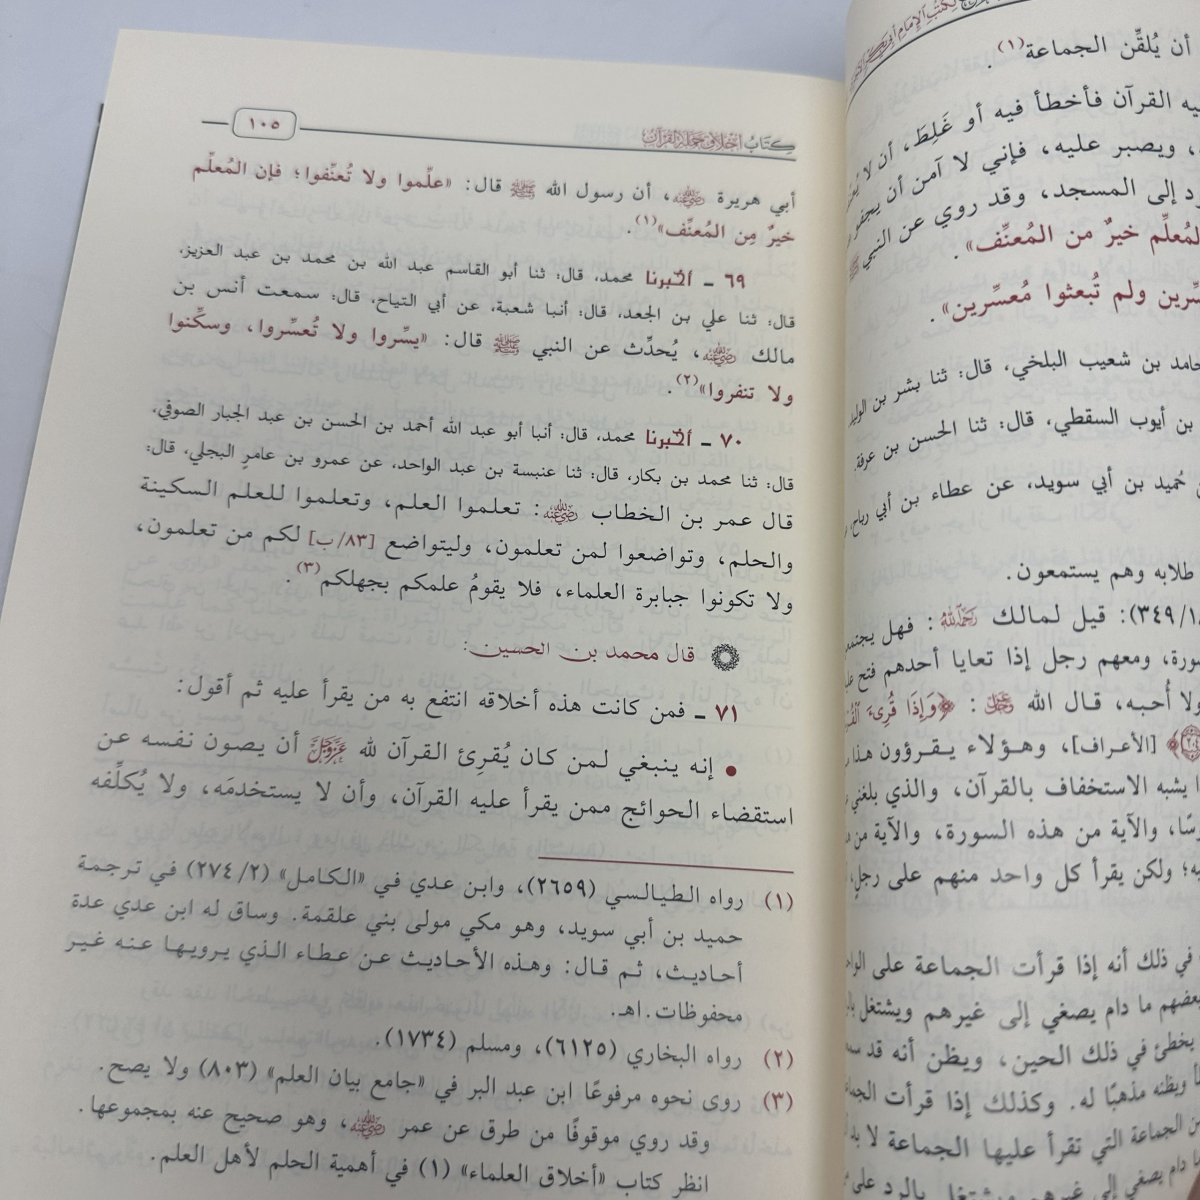 كِتَابُ أَخْلَاقِ حَمَلَةِ القُرْآنِ
١٠٥
أبي هريرة رضي الله عنه، أن رسول الله ﷺ قال: «علِّموا ولا تُعنِّفوا؛ فإن المُعلِّم
خيرٌ مِن المُعنِّف»(١).
٦٩ ـ أخبرنا محمد، قال: ثنا أبو القاسم عبد الله بن محمد بن عبد العزيز،
قال: ثنا علي بن الجعد، قال: أنبا شعبة، عن أبي التياح، قال: سمعت أنس بن
مالك رضي الله عنه، يُحدِّث عن النبي ﷺ قال: «يسِّروا ولا تُعسِّروا، وسكِّنوا
ولا تنفروا»(٢).
٧٠ ـ أخبرنا محمد، قال: أنبا أبو عبد الله أحمد بن الحسن بن عبد الجبار الصوفي،
قال: ثنا محمد بن بكار، قال: ثنا عنبسة بن عبد الواحد، عن عمرو بن عامرٍ البجلي، قال:
قال عمر بن الخطاب رضي الله عنه: تعلموا العلم، وتعلموا للعلم السكينة
والحلم، وتواضعوا لمن تعلمون، وليتواضع [٨٣/ب] لكم من تعلمون،
ولا تكونوا جبابرة العلماء، فلا يقومُ علمكم بجهلكم(٣).
قال محمد بن الحسين:
٧١ ـ فمن كانت هذه أخلاقه انتفع به من يقرأ عليه ثم أقول:
• إنه ينبغي لمن كان يُقرِئ القرآن لله عَزَّوَجَلَّ أن يصون نفسه عن
استقضاء الحوائج ممن يقرأ عليه القرآن، وأن لا يستخدمَه، ولا يُكلِّفه
(١) رواه الطيالسي (٢٦٥٩)، وابن عدي في «الكامل» (٢/ ٢٧٤) في ترجمة
حميد بن أبي سويد، وهو مكي مولى بني علقمة. وساق له ابن عدي عدة
أحاديث، ثم قال: وهذه الأحاديث عن عطاء الذي يرويها عنه غير
محفوظات. اهـ.
(٢) رواه البخاري (٦١٢٥)، ومسلم (١٧٣٤).
(٣) روى نحوه مرفوعًا ابن عبد البر في «جامع بيان العلم» (٨٠٣) ولا يصح.
وقد روي موقوفًا من طرق عن عمر رضي الله عنه، وهو صحيح عنه بمجموعها.
انظر كتاب «أخلاق العلماء» (١) في أهمية الحلم لأهل العلم.
لكتب الإمام أبي بكر
أن يُلقِّن الجماعة(١).
القرآن فأخطأ فيه أو غَلِطَ، أن لا
ويصبر عليه، فإني لا آمن أن يجفو
إلى المسجد، وقد روي عن النبي ﷺ
المُعلِّم خيرٌ من المُعنِّف».
ولم تُبعثوا مُعسِّرين».
حامد بن شعيب البلخي، قال: ثنا بشر بن الوليد
بن أيوب السقطي، قال: ثنا الحسن بن عرفة،
حُميد بن أبي سويد، عن عطاء بن أبي رباح،
طلابه وهم يستمعون.
٣٤٩): قيل لمالك رَحِمَهُ اللهُ: فهل يجتمع
ومعهم رجل إذا تعايا أحدهم فتح
ولا أُحبه، قال الله عَزَّوَجَلَّ: ﴿وَإِذَا قُرِئَ
﴾ [الأعراف]، وهؤلاء يقرؤون هذا
يشبه الاستخفاف بالقرآن، والذي بلغني
والآية من هذه السورة، والآية من
ولكن يقرأ كل واحد منهم على رجلٍ،
في ذلك أنه إذا قرأت الجماعة على الواحد
بعضهم ما دام يصغي إلى غيرهم ويشتغل
يخطئ في ذلك الحين، ويظن أنه قد
ويظنه مذهبًا له. وكذلك إذا قرأت الجماعة
من الجماعة التي تقرأ عليها الجماعة لا بد
ما دام يصغي إلى غيرها ويشتغل بالرد على